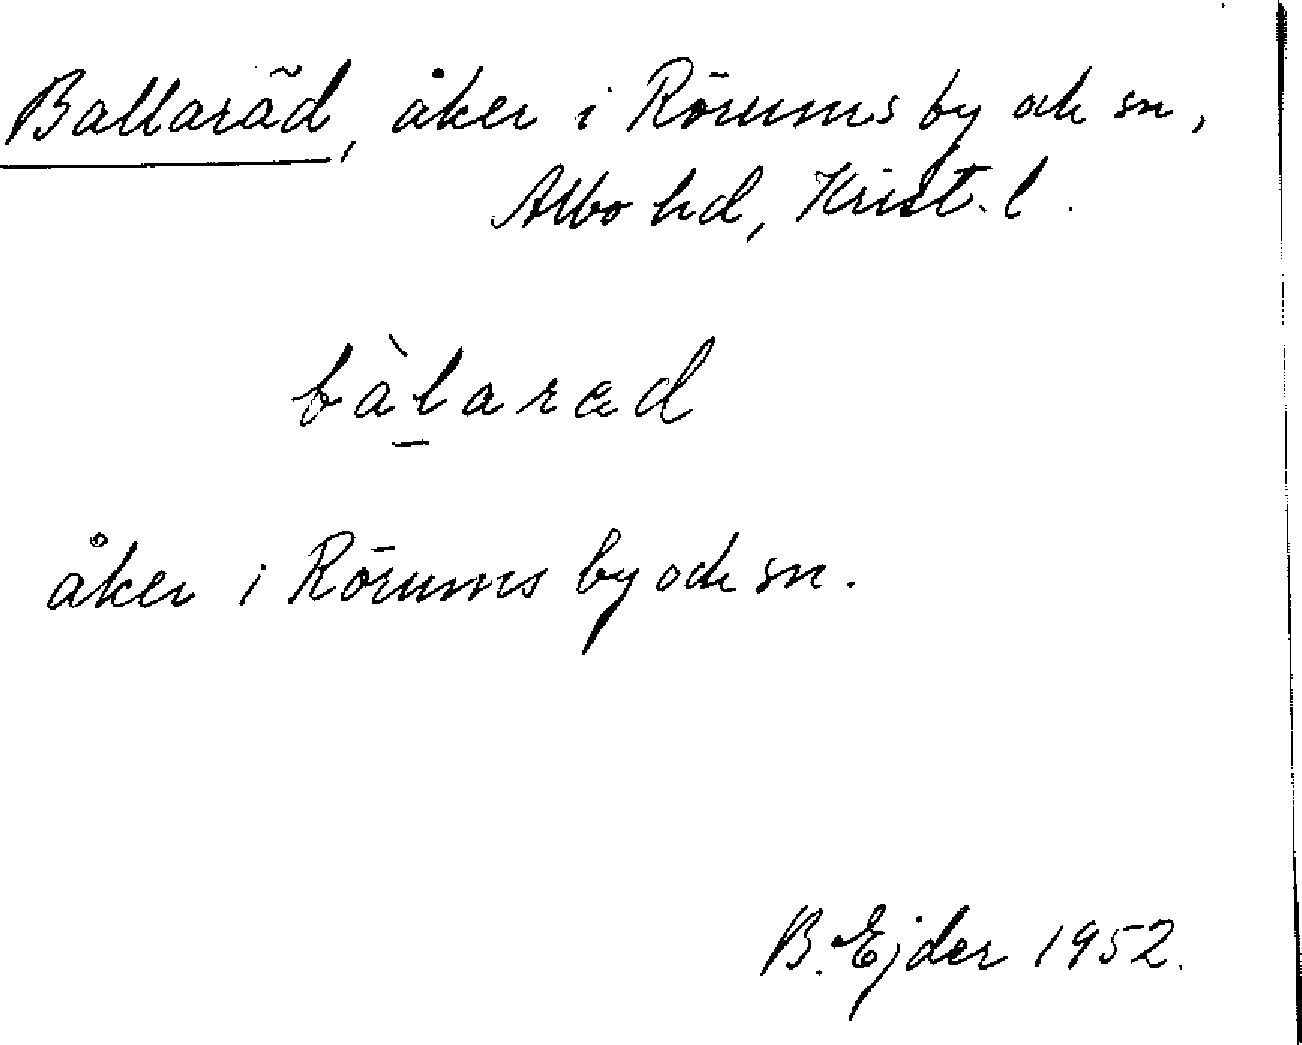 Ballaräd, åker i Rörums by och sn,
Albo hd, Krist. l.
bàl̠aræd
åker i Rörums by och sn.
B. Ejder 1952.